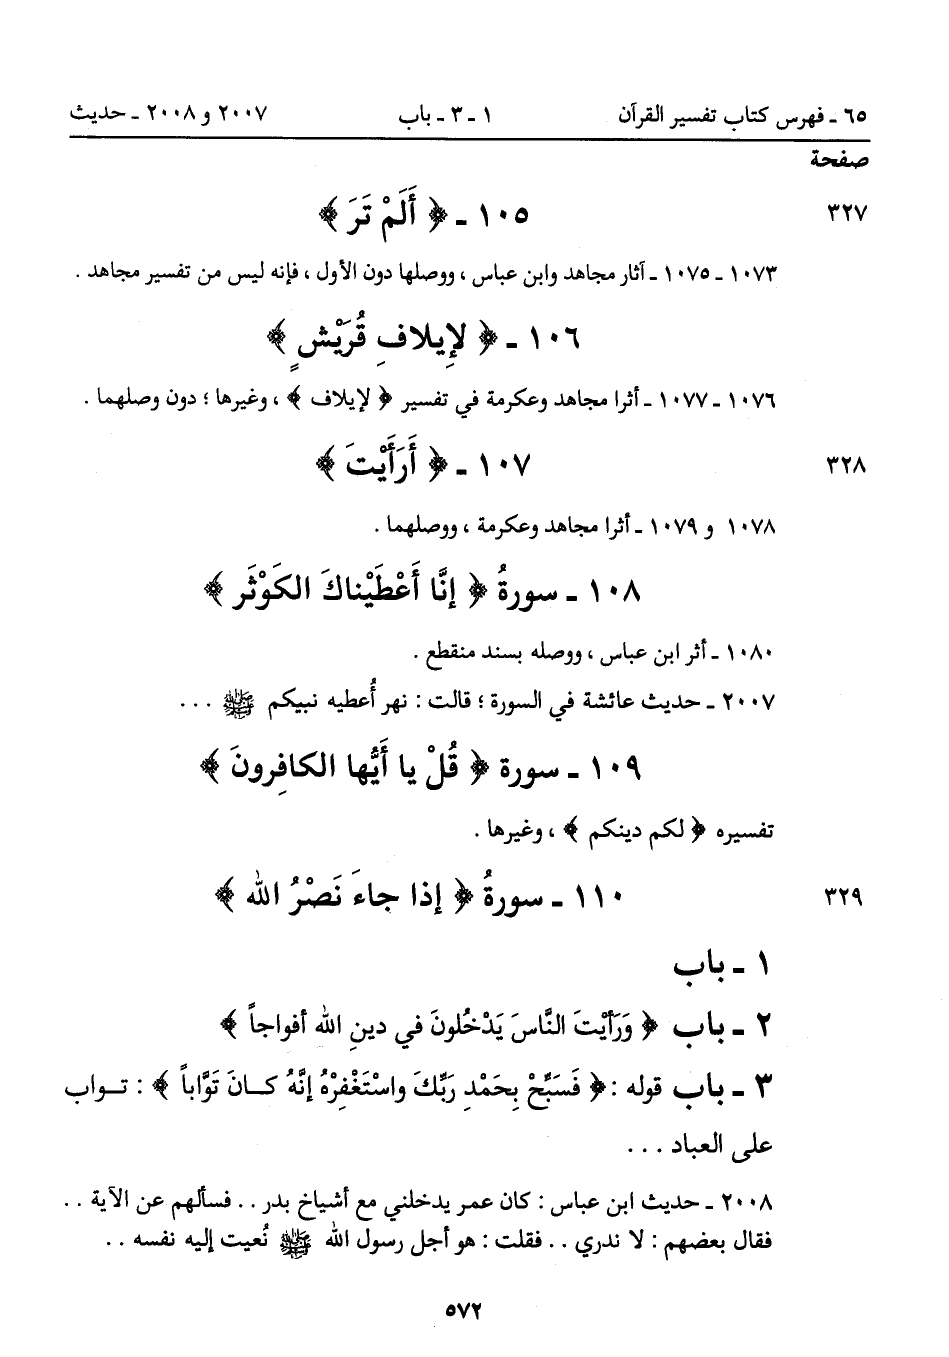 ٦٥ ـ فهرس كتاب تفسير القرآن ١ ـ ٣ ـ باب ٢٠٠٧ و ٢٠٠٨ ـ حديث
صفحة
٣٢٧ ١٠٥ ـ ﴿ أَلَمْ تَرَ ﴾
١٠٧٣ ـ ١٠٧٥ ـ آثار مجاهد وابن عباس ، ووصلها دون الأول ، فإنه ليس من تفسير مجاهد .
١٠٦ ـ ﴿ لإِيلافِ قُرَيْشٍ ﴾
١٠٧٦ ـ ١٠٧٧ ـ أثرا مجاهد وعكرمة في تفسير ﴿ لإيلاف ﴾ ، وغيرها ؛ دون وصلهما .
٣٢٨ ١٠٧ ـ ﴿ أَرَأَيْتَ ﴾
١٠٧٨ و ١٠٧٩ ـ أثرا مجاهد وعكرمة ، ووصلهما .
١٠٨ ـ سورةُ ﴿ إنَّا أَعْطَيْناكَ الكَوْثَر ﴾
١٠٨٠ ـ أثر ابن عباس ، ووصله بسند منقطع .
٢٠٠٧ ـ حديث عائشة في السورة ؛ قالت : نهر أُعطيه نبيكم ﷺ . . .
١٠٩ ـ سورة ﴿ قُلْ يا أَيُّها الكافِرونَ ﴾
تفسيره ﴿ لكم دينكم ﴾ ، وغيرها .
٣٢٩ ١١٠ ـ سورةُ ﴿ إذا جاءَ نَصْرُ الله ﴾
١ ـ باب
٢ ـ باب ﴿ وَرَأَيْتَ النَّاسَ يَدْخُلونَ في دينِ الله أفواجاً ﴾
٣ ـ باب قوله : ﴿ فَسَبِّحْ بِحَمْدِ رَبِّكَ واسْتَغْفِرْهُ إنَّهُ كـانَ تَوَّاباً ﴾ : تـواب
على العباد . . .
٢٠٠٨ ـ حديث ابن عباس : كان عمر يدخلني مع أشياخ بدر . . فسألهم عن الآية . .
فقال بعضهم : لا ندري . . فقلت : هو أجل رسول الله ﷺ نُعيت إليه نفسه . .
٥٧٢